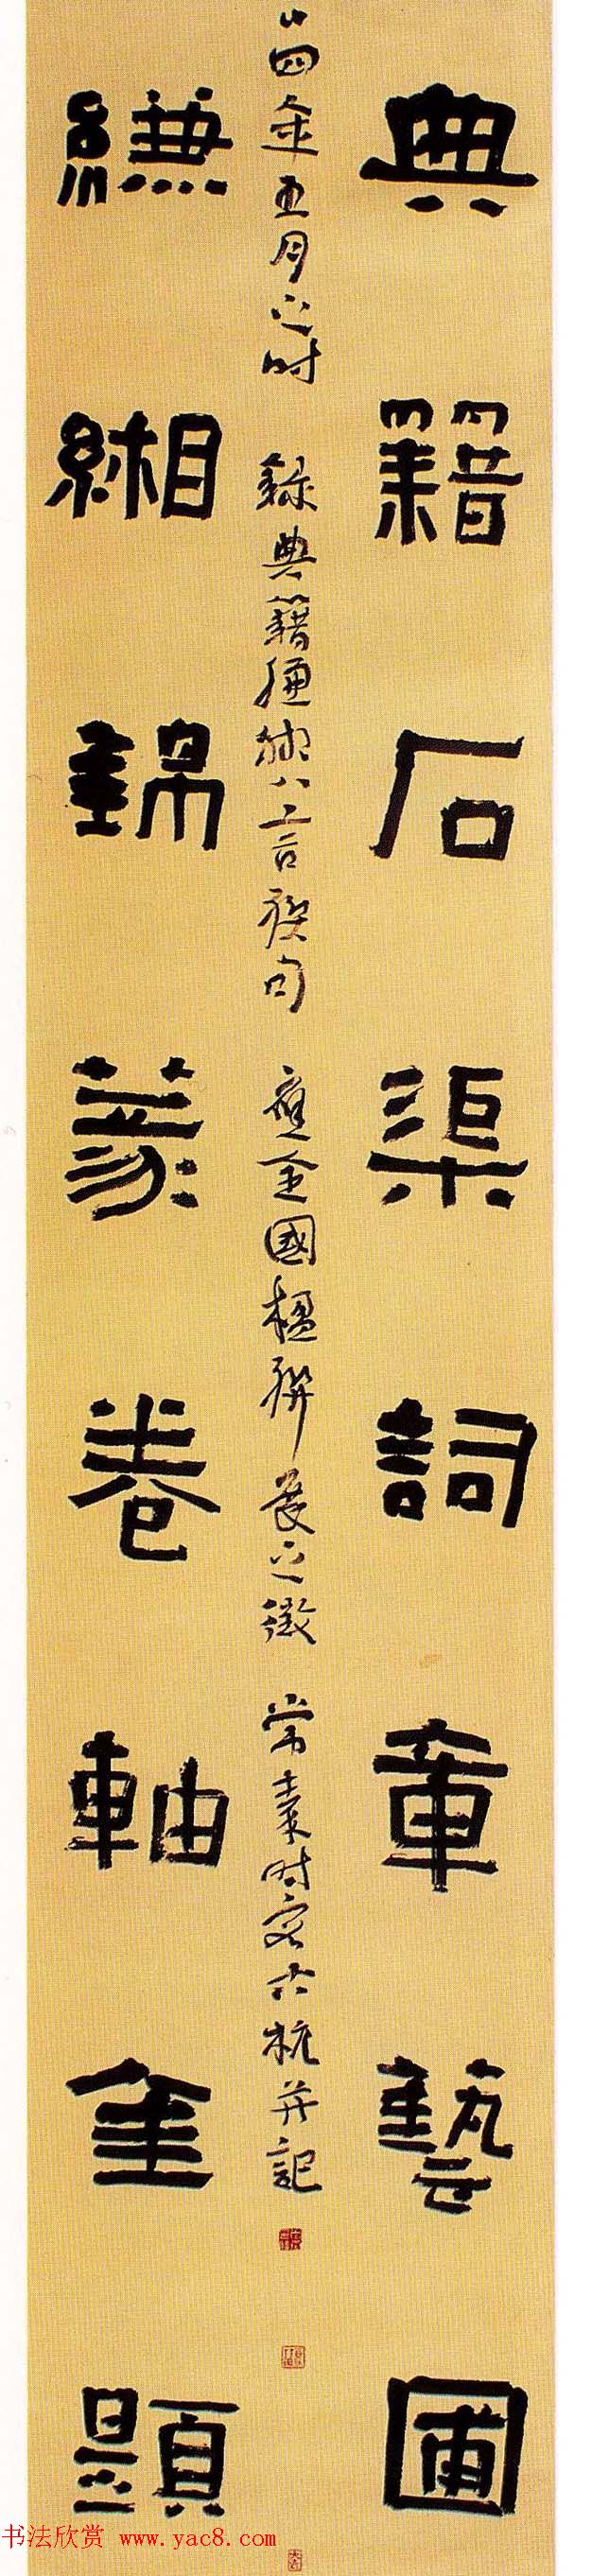 典籍石渠詞章藝圃
縑緗錦篆卷軸金題
四年五月之时 錄典籍縑緗八言聯句 應全國楹聯展之徵 常熟时客六杭并記
书法欣赏 www.yac8.com